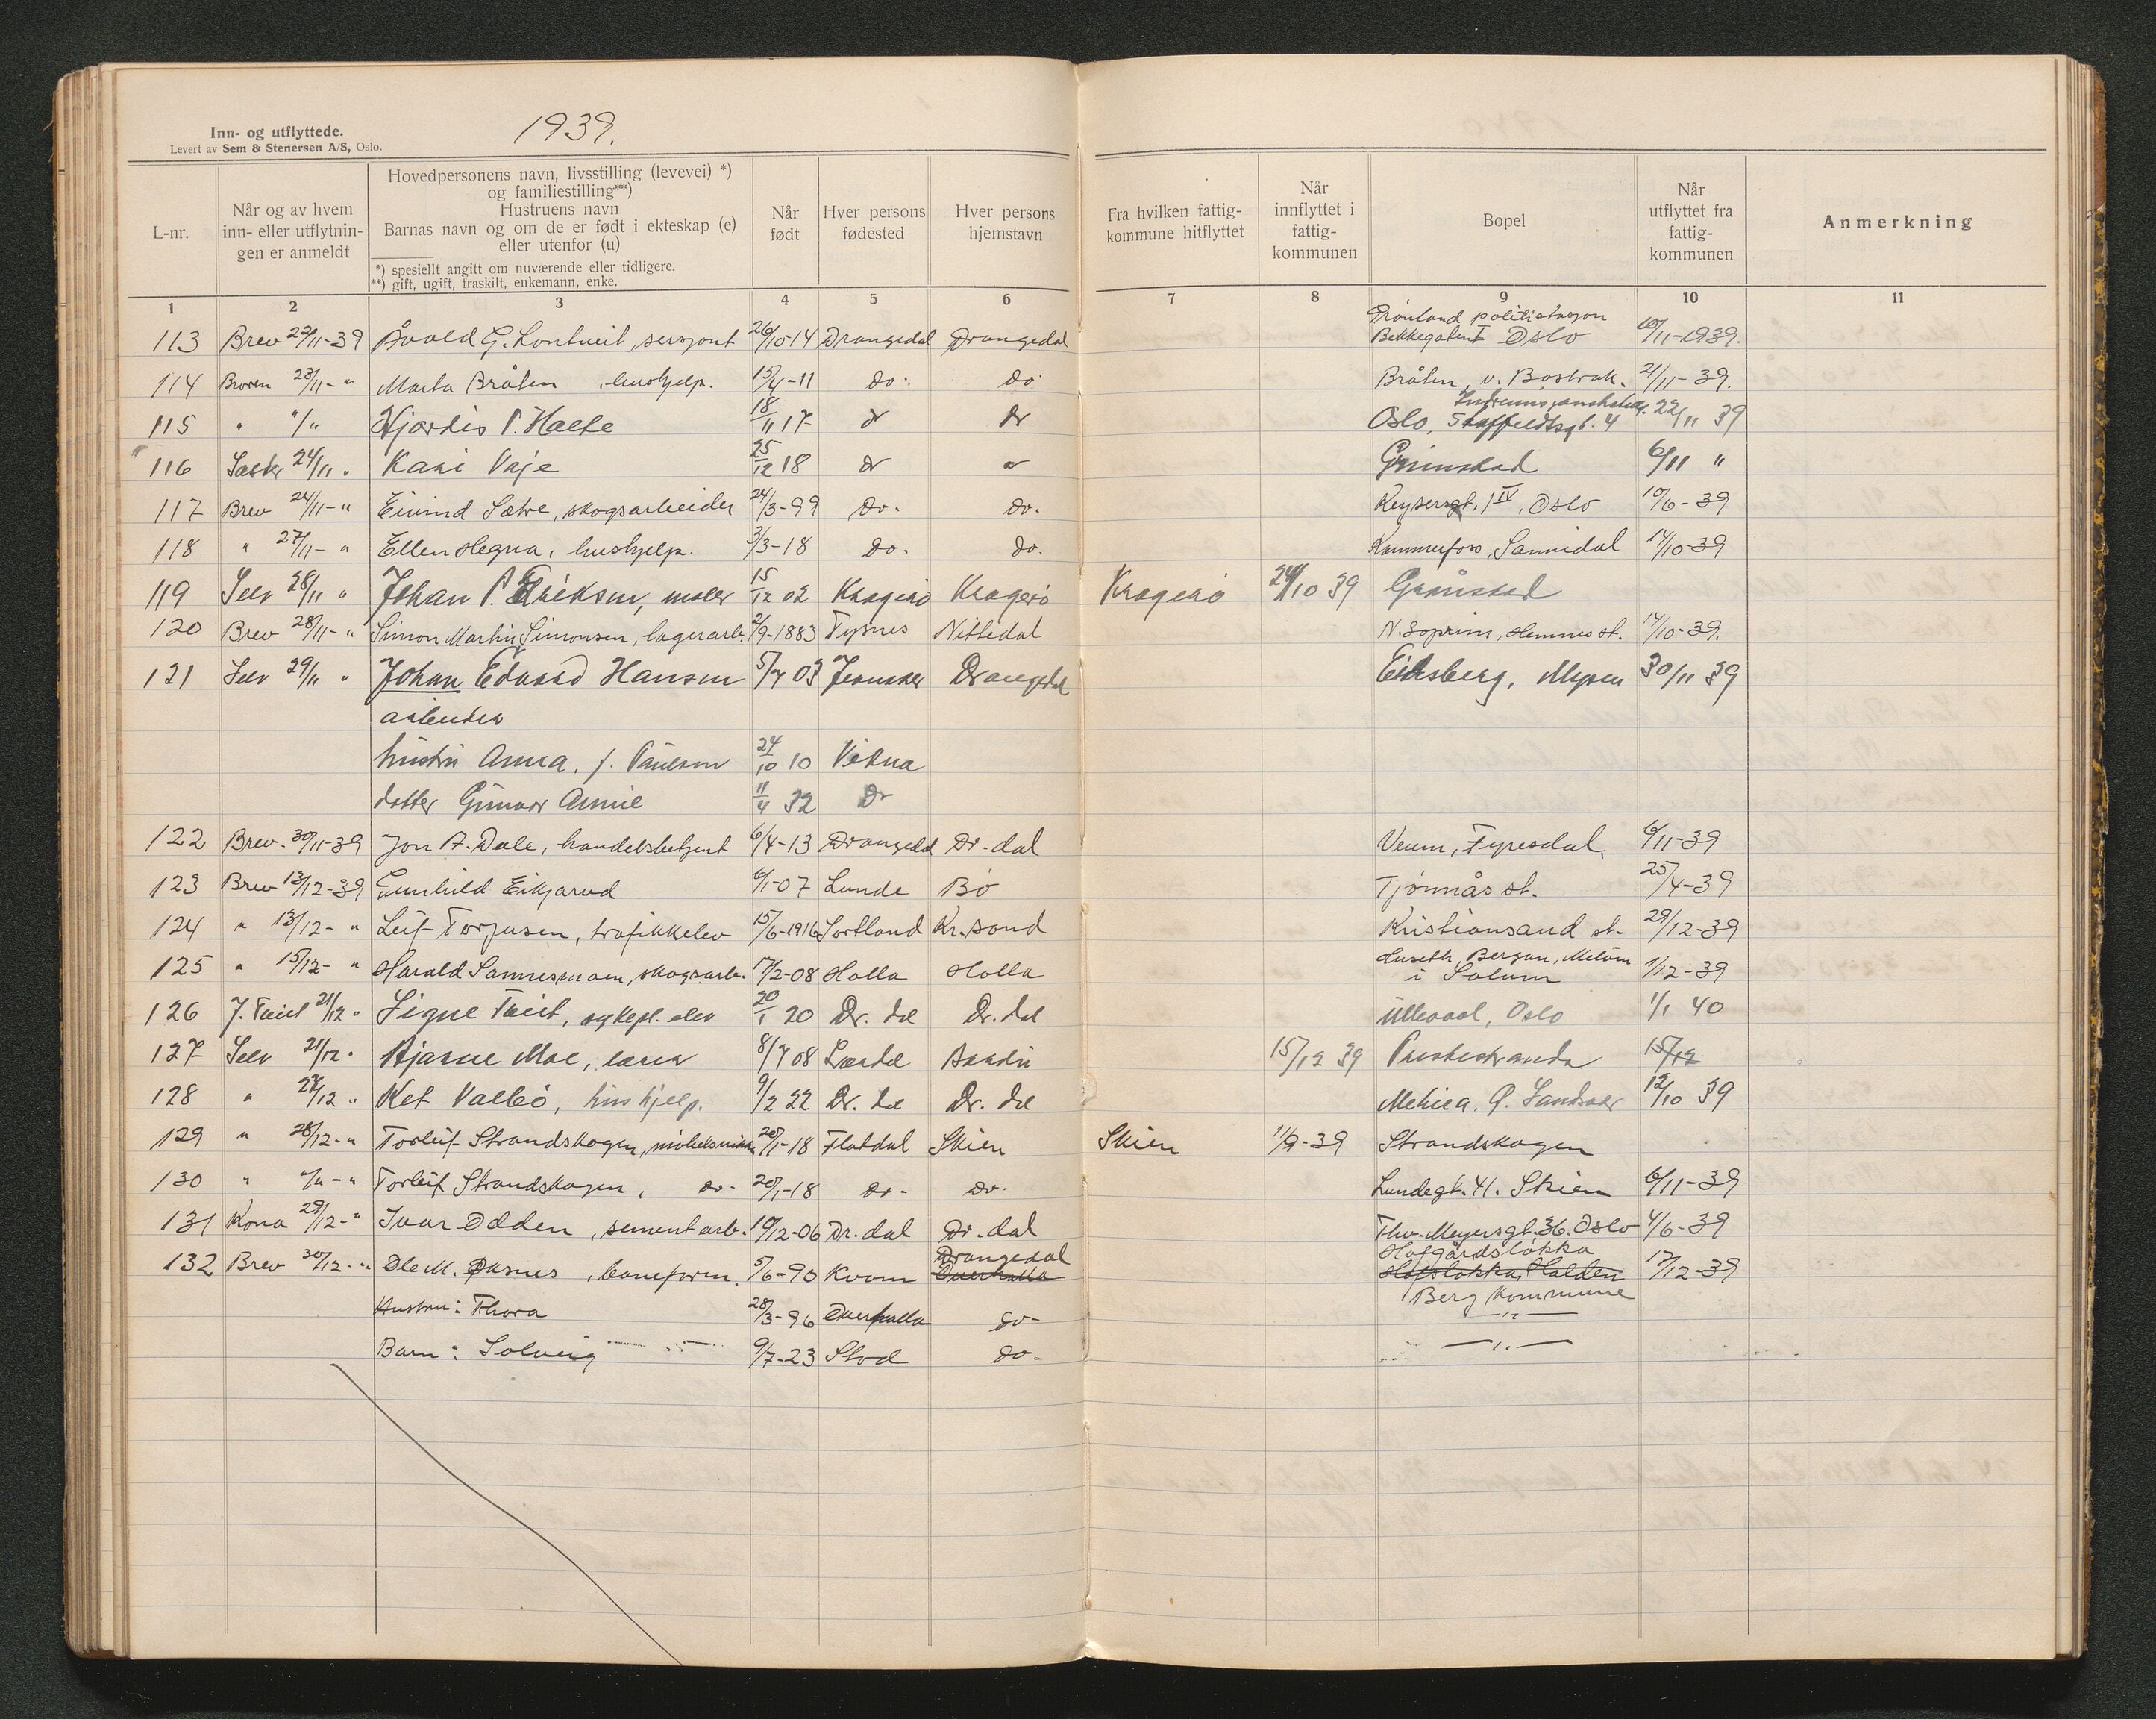 1939.
Inn- og utflyttede.
Levert av Sem & Stenersen A/S, Oslo.
L-nr.
Når og av hvem
inn- eller utflytnin-
gen er anmeldt
Hovedpersonens navn, livsstilling (levevei) *)
og familiestilling**)
Hustruens navn
Barnas navn og om de er født i ekteskap (e)
eller utenfor (u)
*) spesiellt angitt om nuværende eller tidligere.
**) gift, ugift, fraskilt, enkemann, enke.
Når
født
Hver persons
fødested
Hver persons
hjemstavn
Fra hvilken fattig-
kommune hitflyttet
Når
innflyttet i
fattig-
kommunen
Bopel
Når
utflyttet fra
fattig-
kommunen
Anmerkning
1 2 3 4 5 6 7 8 9 10 11
Grønland politistasjon
113 Brev 27/11-39 Åvald G. Lontveit, sersjant 26/10-14 Drangedal Drangedal Bekkegaten I Oslo 10/11-1939.
114 Broren 23/11- " Marta Bråten, hushjelp. 15/4-11 do. do. Bråten, v. Bostrak. 21/11-39.
115 " "/" Hjørdis P. Halte 18/11 17 dr dr Oslo, Staffeldtsgt. 4 22/11 39
116 24/11 " Kari Vaje 25/12 18 dr dr Grimstad 6/11 "
117 Brev 24/11- " Eivind Sætre, skogsarbeider 24/3-99 do. do. Keysersgt. 1 IV, Oslo 10/6-39
118 " 27/11- " Ellen Hegna, hushjelp. 3/3-18 do. do. Kammerfoss, Sannidal 14/10-39
119 Selv 28/11 " Johan P. Eriksen, maler 15/12 02 Kragerø Kragerø Kragerø 24/10 39 Gråmstad
120 Brev 28/11- " Simon Martin Simonsen, lagerarb. 2/9-1883 Tysnes Nittedal N. Soprim, Hemnes st. 14/10-39.
121 Selv 29/11 " Johan Edvard Hansen 5/7 03 Drangedal Eidsberg, Mysen 30/11 39
arbeider
hustru Anna. f. Paulsen 24/10 10 Vikna
datter Gunvor Annie 11/4 32 Dr
122 Brev. 30/11-39 Jon A. Dale, handelsbetjent 6/4-13 Drangedal Dr.dal Veum, Fyresdal, 6/11-39
123 Brev 13/12-39 Gunhild Eikjarud 6/1-07 Lunde Bø Tjønnås st. 25/4-39
124 " 13/12- " Leif Torjusen, trafikkelev 15/6-1916 Sortland Kr.sand Kristiansand st. 29/12-39
Huseth, Bergan, Melum
125 " 15/12- " Harald Sannesmoen, skogsarb. 17/2-08 Holla Holla i Solum 1/12-39
126 J. Tveit 21/12 " Signe Tveit, sykepl. elev 20/1 20 Dr. dal Dr. dal Ullevaal, Oslo 1/1 40
127 Selv 21/12 " Bjarne Moe, lærer 8/7 08 15/12 39 Prestestranda 15/12
128 " 27/12 " Ket Valbø, hushjelp. 9/2 22 Dr. dal Dr. dal 12/10 39
129 " 28/12- " Torleif Strandskogen, møbelsnikker 20/1-18 Flatdal Skien Skien 11/9-39 Strandskogen
130 " "/"- " Torleif Strandskogen, do. 20/1-18 do. do. Lundegt. 41. Skien 6/11-39
131 Kona 29/12- " Ivar Odden, sementarb. 10/12-06 Dr.dal Dr.dal Thv. Meyersgt. 36. Oslo 4/6-39
Drangedal Hofgårdsløkka
132 Brev 30/12- " Ole M. Øksnes, baneform. 5/6-90 Kvam Overhalla Hofsløkka, Halden 17/12-39
Berg kommune
Hustru: Thora 28/3-96 Overhalla do- -"-
Barn: Solveig 9/7-23 Stod do- -"-